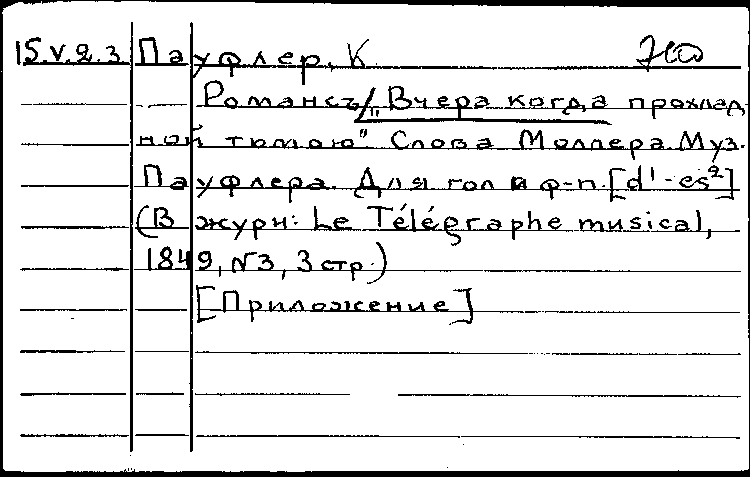 15.V.2.3 Пауфлер, К
Романсъ/„Вчера когда прохлад
ной тьмою". Слова Моллера. Муз.
Пауфлера. Для гол и ф-п. [d¹-es²]
(В журн: Le Télégraphe musical,
1849, N3, 3 стр.)
[Приложение]